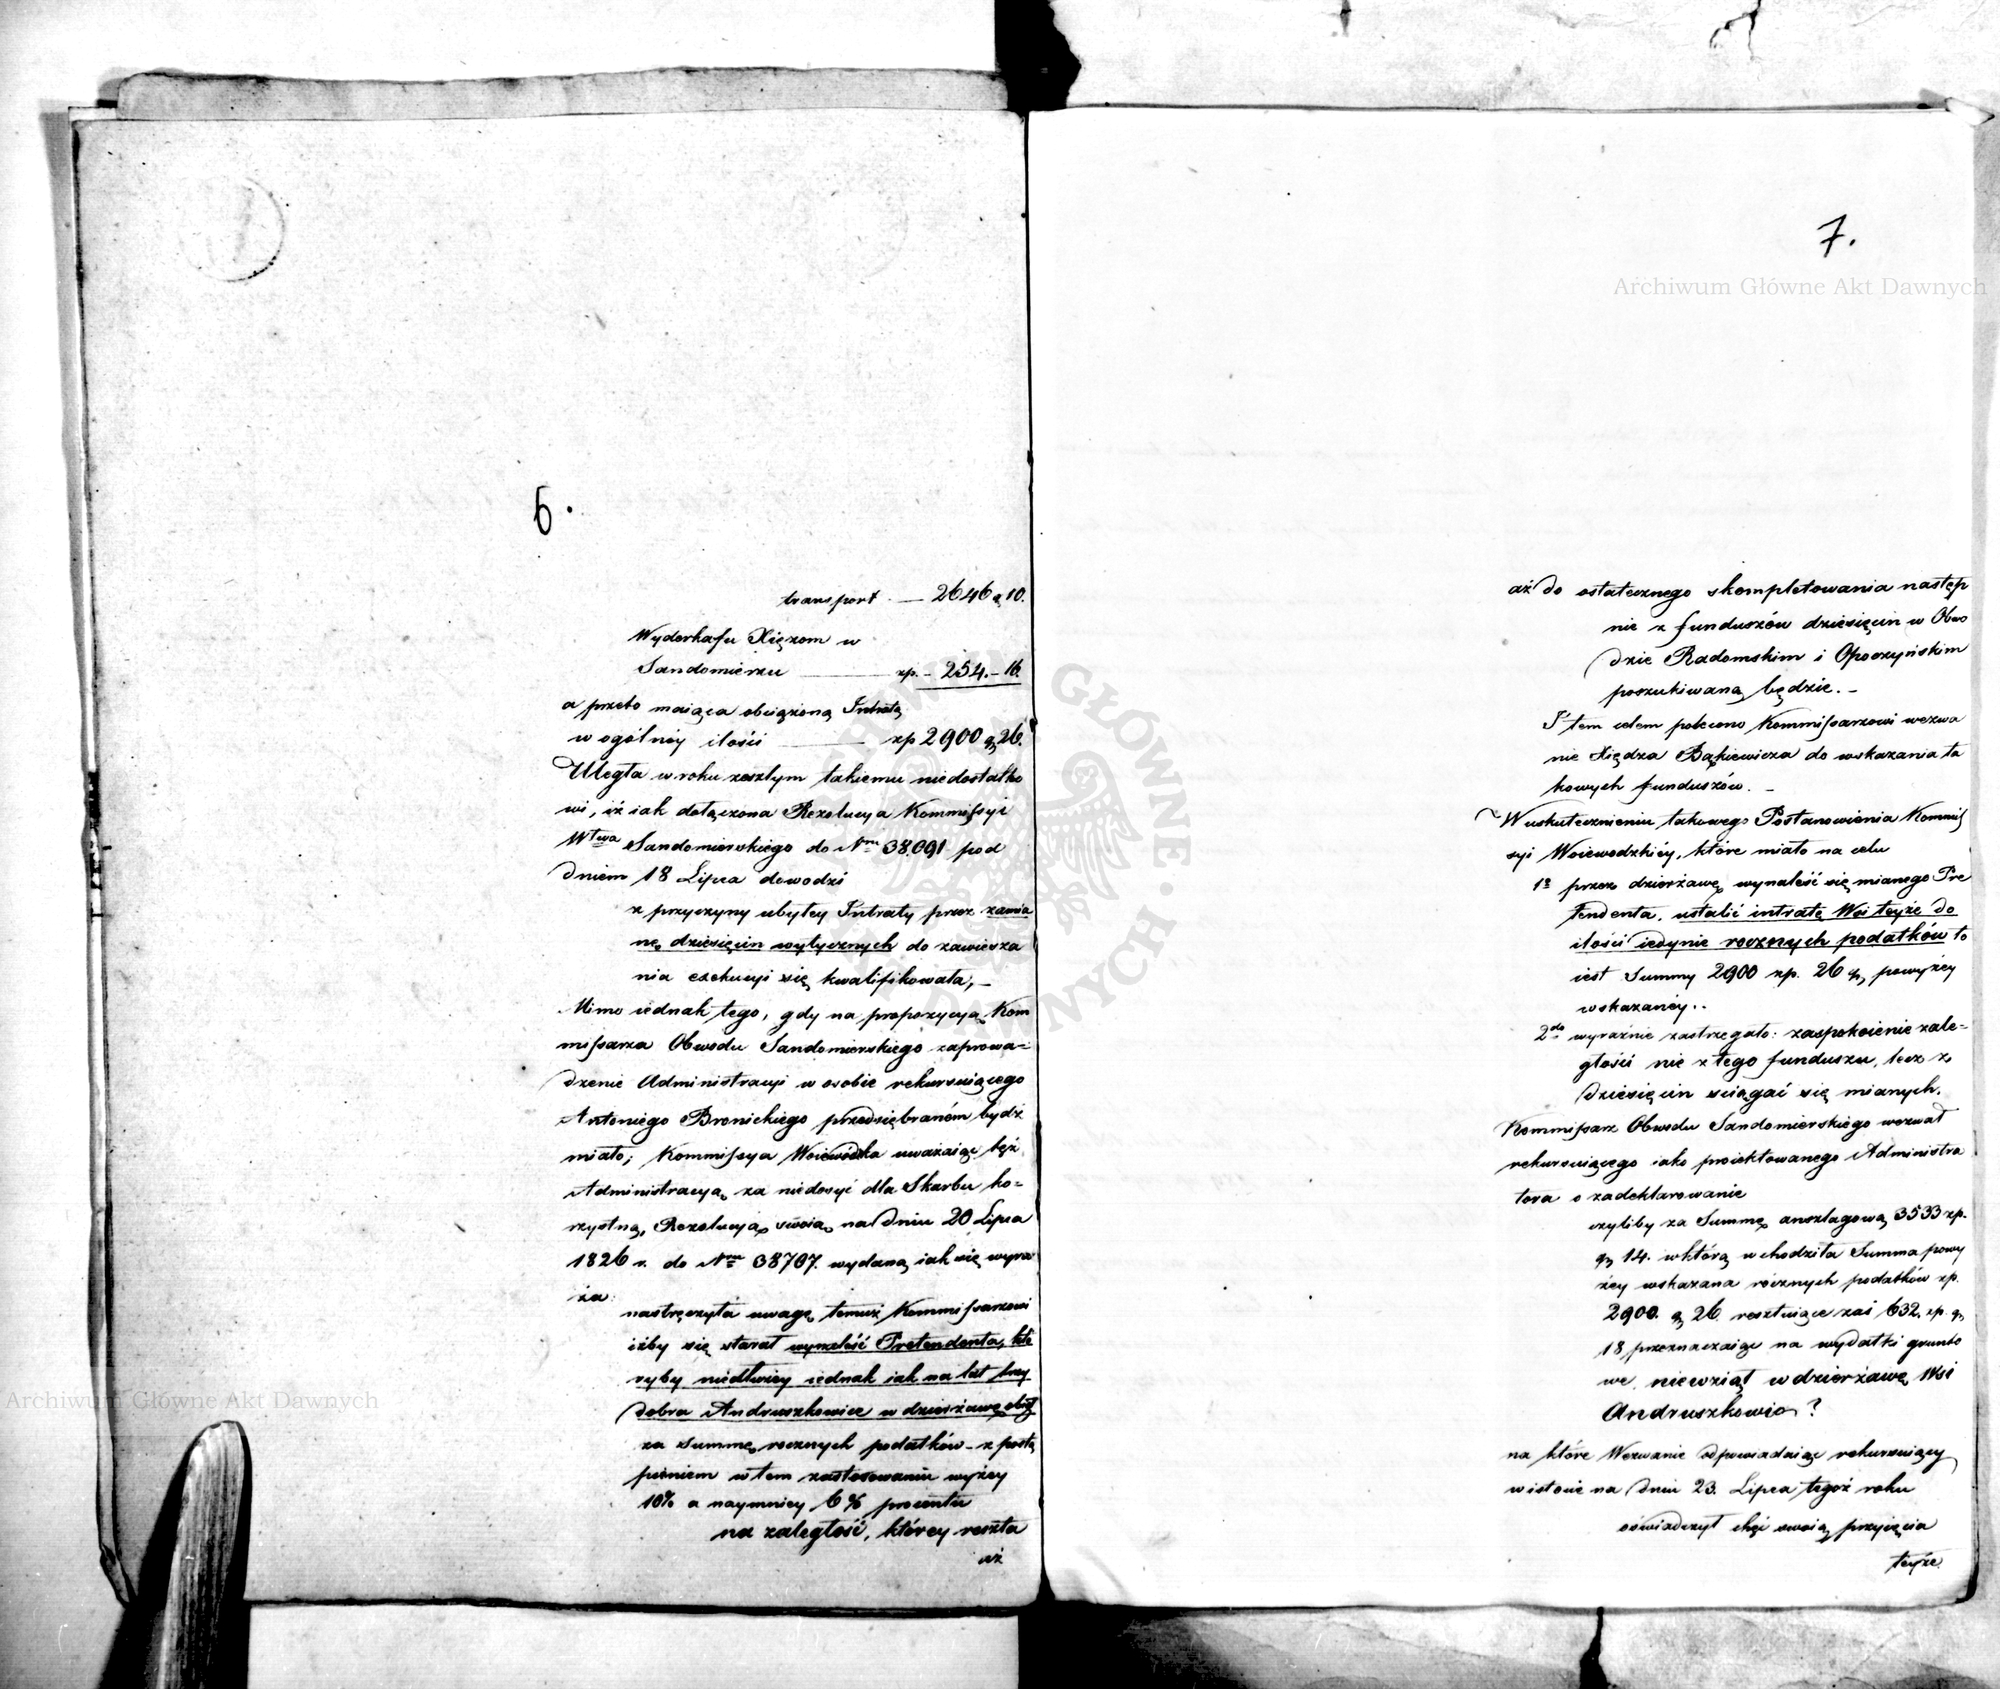 6.
transport — 2646 g 10.
Wyderkafu Xiężom w
Sandomierzu — zp. - 254. - 16.
a przeto maiąca obciążoną Intratę
w ogólney ilości — zp 2900 g 26.
Uległa w roku zeszłym takiemu niedostatko
wi, iż iak dołączona Rezolucya Kommissyi
Wtwa Sandomierskiego do Nru 38.091 pod
dniem 18 Lipca dowodzi
z przyczyny ubyłey Intraty przez zamia
nę dziesięcin wytycznych do zawiesza
nia exekucyi się kwalifikowała, —
Mimo iednak tego, gdy na propozycyą Kom
missarza Obwodu Sandomierskiego zaprowa=
dzenie Administracyi w osobie rekursuiącego
Antoniego Bronickiego przedsiębraném bydź
miało; Kommissya Woiewódzka uważaiąc tęż
Administracyą za niedosyć dla Skarbu ko=
rzystną, Rezolucyą swoią na dniu 20 Lipca
1826 r. do Nru 38707. wydaną iak się wyra
ża:
nastręczyła uwagę temuż Kommissarzowi
iżby się starał wynaleść Pretendenta, któ
ryby niedłużey iednak iak na lat trzy
dobra Andruszkowice w dzierżawę obiął
za summę rocznych podatków - z postą
pieniem w tem zastosowaniu wyżey
10% a naymniey 6% procentu
na zaległość, którey reszta
aż
7.
aż do ostatecznego skompletowania następ
nie z funduszów dziesięcin w Obwo
dzie Radomskim i Opoczyńskim
poszukiwaną będzie. —
Tem celem polecono Kommissarzowi wezwa
nie Xiędza Bąkiewicza do wskazania ta
kowych funduszów. —
W uskutecznieniu takowego Postanowienia Kommis
syi Woiewodzkiéy, które miało na celu
1o przez dzierżawę wynaleść się mianego Pre
tendenta, ustalić intratę Wsi teyże do
ilości iedynie rocznych podatków to
iest Summy 2900 zp. 26 g. powyżey
wskazanéy..
2do wyraźnie zastrzegało: zaspokoienie zale=
głości nie z tego funduszu, lecz z
dziesięcin sciągać się mianych.
Kommissarz Obwodu Sandomierskiego wezwał
rekursuiącego iako proiektowanego Administra
tora o zadeklarowanie
czyliby za Summę anszlagową 3533 zp.
g. 14. w którą wchodziła Summa powy
żey wskazana rocznych podatków zp.
2900. g 26. resztuiące zaś 632. zp. g.
18 przeznaczaiąc na wydatki grunto
we, niewziął w dzierżawę Wsi
Andruszkowic?
na które Wezwanie odpowiadaiąc rekursuiący
w istocie na dniu 23. Lipca tegoż roku
oświadczył chęć swoią przyięcia
teyże
Archiwum Główne Akt Dawnych
Archiwum Główne Akt Dawnych